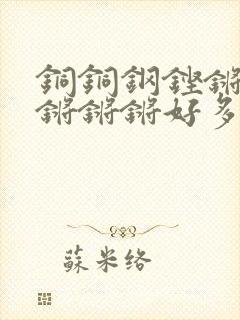 銅銅鋼鏗鏘
鏘鏘鏘好多
蘇米络